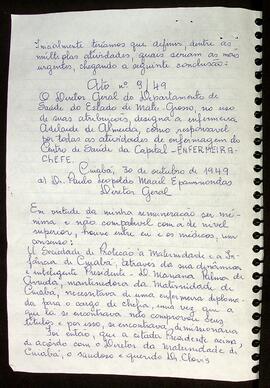 Inicialmente teríamos que definir, dentre as
múltiplas atividades, quais seriam as mais
urgentes, chegando a seguinte conclusão:
Ato nº 9/49
O Diretor Geral do Departamento de
Saúde do Estado de Mato Grosso, no uso
de suas atribuições, designa a enfermeira
Adelaide de Almeida, como responsável
por todas as atividades de enfermagem do
Centro de Saúde da Capital - ENFERMEIRA-
CHEFE.
Cuiabá, 30 de outubro de 1949.
a) Dr. Paulo Leopoldo Maciel Epaminondas
Diretor Geral
Em virtude da minha remuneração ser mí-
nima e não compatível com a de nível
superior, houve entre eu e os médicos, um
consenso:
A Sociedade de Proteção a Maternidade e a In-
fância de Cuiabá, através da sua dinâmica
e inteligente Presidente - Dª Mariana
Arruda, mantenedora da Maternidade de
Cuiabá, necessitava de uma enfermeira diploma-
da para o cargo de chefia, uma vez que a
que lá se encontrava não comprovou seus
títulos e por isso, se encontrava demissionária.
Foi então, que a citada Presidente acima,
de acôrdo com o Diretor da Maternidade de
Cuiabá, o saudoso e querido Dr. Clovis